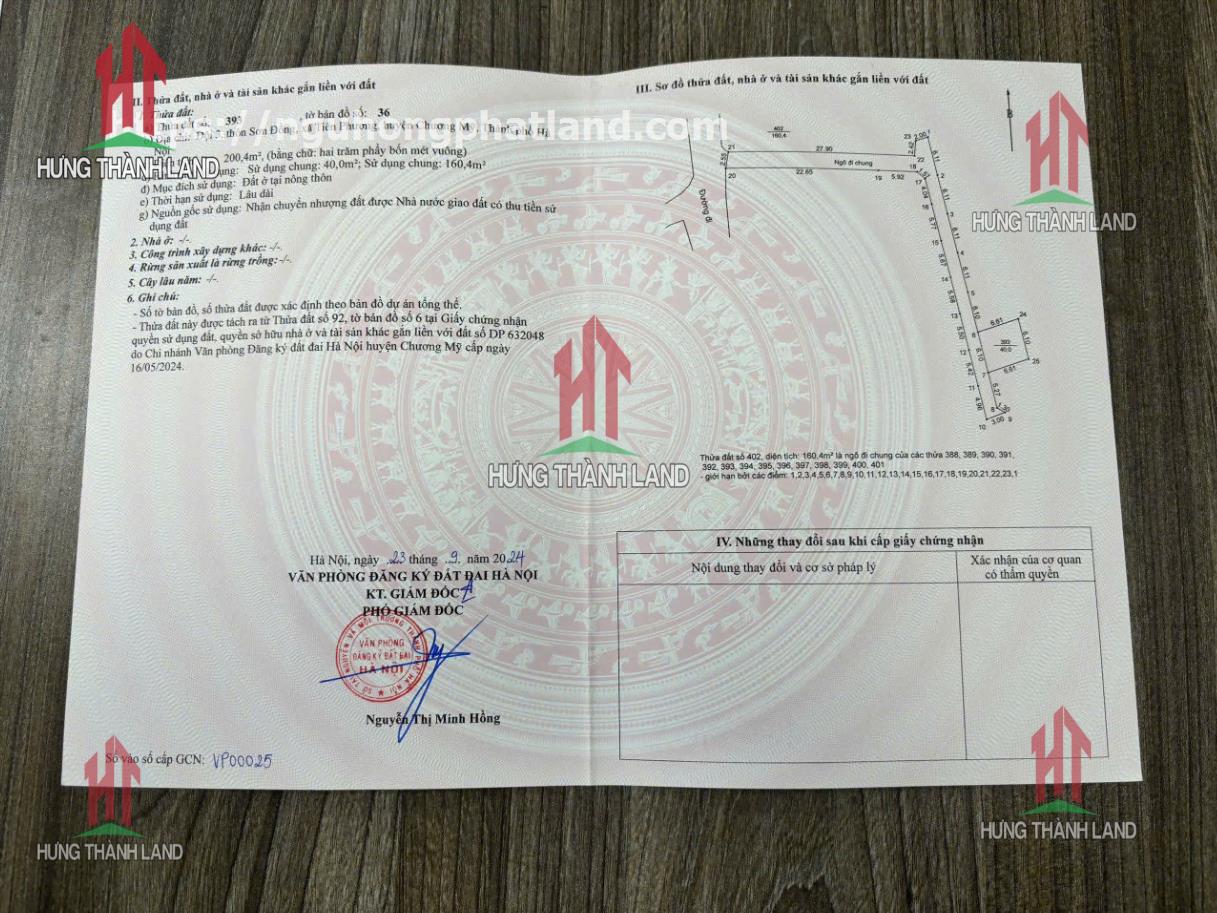 II. Thửa đất, nhà ở và tài sản khác gắn liền với đất
Thửa đất:
Thửa đất số: 393 , tờ bản đồ số: 36
thôn Sơn Đồng, xã Tiên Phương, huyện Chương Mỹ, Thành phố Hà
Nội
200,4m², (bằng chữ: hai trăm phẩy bốn mét vuông)
dụng: Sử dụng chung: 40,0m²; Sử dụng chung: 160,4m²
d) Mục đích sử dụng: Đất ở tại nông thôn
e) Thời hạn sử dụng: Lâu dài
g) Nguồn gốc sử dụng: Nhận chuyển nhượng đất được Nhà nước giao đất có thu tiền sử
dụng đất
2. Nhà ở: -/-.
3. Công trình xây dựng khác: -/-.
4. Rừng sản xuất là rừng trồng:-/-.
5. Cây lâu năm: -/-.
6. Ghi chú:
- Số tờ bản đồ, số thửa đất được xác định theo bản đồ dự án tổng thể.
- Thửa đất này được tách ra từ Thửa đất số 92, tờ bản đồ số 6 tại Giấy chứng nhận
quyền sử dụng đất, quyền sở hữu nhà ở và tài sản khác gắn liền với đất số DP 632048
do Chi nhánh Văn phòng Đăng ký đất đai Hà Nội huyện Chương Mỹ cấp ngày
16/05/2024.
Hà Nội, ngày 23 tháng 9 năm 2024
VĂN PHÒNG ĐĂNG KÝ ĐẤT ĐAI HÀ NỘI
KT. GIÁM ĐỐC
PHÓ GIÁM ĐỐC
SỞ TÀI NGUYÊN VÀ MÔI TRƯỜNG THÀNH PHỐ HÀ NỘI
VĂN PHÒNG
ĐĂNG KÝ ĐẤT ĐAI
HÀ NỘI
Nguyễn Thị Minh Hồng
Số vào sổ cấp GCN: VP00025
III. Sơ đồ thửa đất, nhà ở và tài sản khác gắn liền với đất
B
402
160,4
27.90
Ngõ đi chung
22.65
19 5.92
2.55
21
20
Đường đi
23 2.00
2.42
22
18
17
6.11
6.11
6.11
6.10
6.10
5.27
5.77
5.67
5.50
5.42
4.96
6.61
24
393
40,0
6.10
6.61
25
3.00
10
9
Thửa đất số 402, diện tích: 160,4m² là ngõ đi chung của các thửa 388, 389, 390, 391,
392, 393, 394, 395, 396, 397, 398, 399, 400, 401
- giới hạn bởi các điểm: 1,2,3,4,5,6,7,8,9,10,11,12,13,14,15,16,17,18,19,20,21,22,23,1
IV. Những thay đổi sau khi cấp giấy chứng nhận
Nội dung thay đổi và cơ sở pháp lý
Xác nhận của cơ quan
có thẩm quyền
HƯNG THÀNH LAND
HƯNG THÀNH LAND
HƯNG THÀNH LAND
HƯNG THÀNH LAND
HƯNG THÀNH LAND